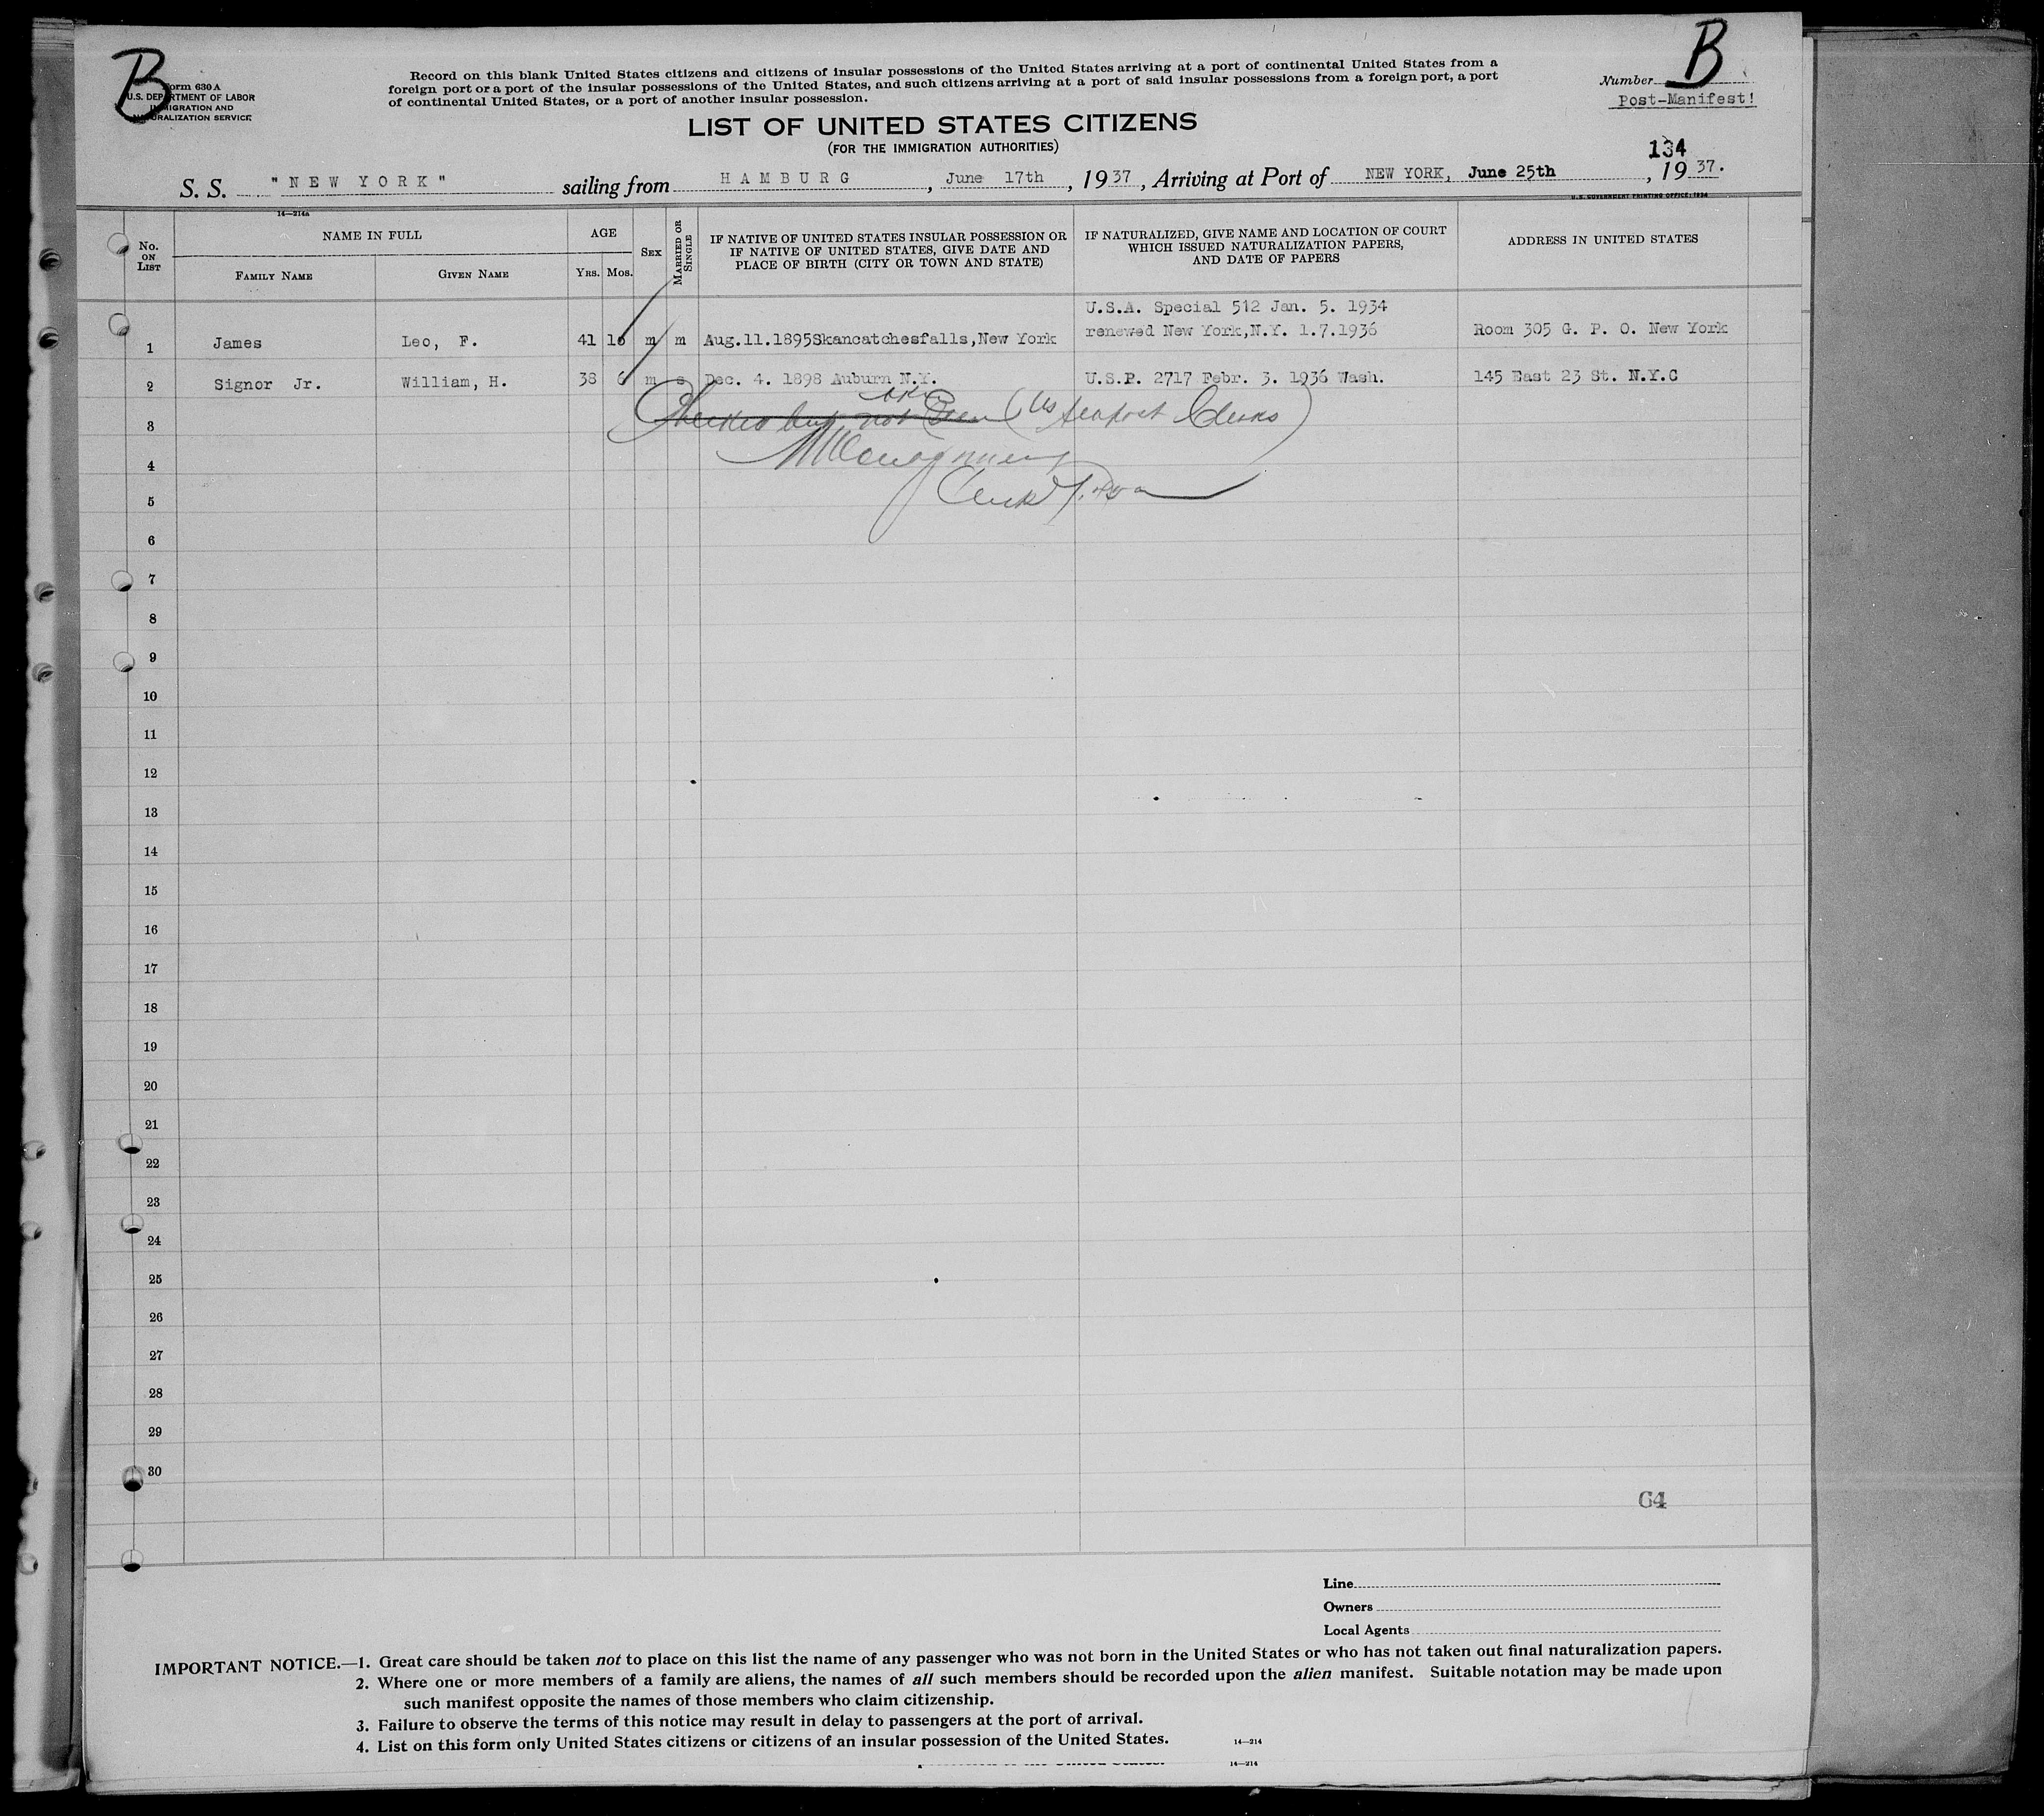 B
B
Form 630 A
U.S. DEPARTMENT OF LABOR
IMMIGRATION AND
NATURALIZATION SERVICE
Record on this blank United States citizens and citizens of insular possessions of the United States arriving at a port of continental United States from a
foreign port or a port of the insular possessions of the United States, and such citizens arriving at a port of said insular possessions from a foreign port, a port
of continental United States, or a port of another insular possession.
Number
Post-Manifest!
LIST OF UNITED STATES CITIZENS
(FOR THE IMMIGRATION AUTHORITIES)
134
S. S. "NEW YORK" sailing from HAMBURG, June 17th, 1937, Arriving at Port of NEW YORK, June 25th, 1937.
U.S. GOVERNMENT PRINTING OFFICE: 1934
14—214a
No. ON LIST
NAME IN FULL
FAMILY NAME
GIVEN NAME
AGE
YRS. MOS.
SEX
MARRIED OR SINGLE
IF NATIVE OF UNITED STATES INSULAR POSSESSION OR
IF NATIVE OF UNITED STATES, GIVE DATE AND
PLACE OF BIRTH (CITY OR TOWN AND STATE)
IF NATURALIZED, GIVE NAME AND LOCATION OF COURT
WHICH ISSUED NATURALIZATION PAPERS,
AND DATE OF PAPERS
ADDRESS IN UNITED STATES
U.S.A. Special 512 Jan. 5. 1934
renewed New York,N.Y. 1.7.1936
1 James Leo, F. 41 10 m m Aug.11.1895Skancatchesfalls,New York Room 305 G. P. O. New York
2 Signor Jr. William, H. 38 6 m s Dec. 4. 1898 Auburn N.Y. U.S.P. 2717 Febr. 3. 1936 Wash. 145 East 23 St. N.Y.C
Checked but not Seen (US seapost Clerks)
3
4
5
6
7
8
9
10
11
12
13
14
15
16
17
18
19
20
21
22
23
24
25
26
27
28
29
30
64
Line
Owners
Local Agents
IMPORTANT NOTICE.—1. Great care should be taken not to place on this list the name of any passenger who was not born in the United States or who has not taken out final naturalization papers.
2. Where one or more members of a family are aliens, the names of all such members should be recorded upon the alien manifest. Suitable notation may be made upon
such manifest opposite the names of those members who claim citizenship.
3. Failure to observe the terms of this notice may result in delay to passengers at the port of arrival.
4. List on this form only United States citizens or citizens of an insular possession of the United States.
14—214
14—214